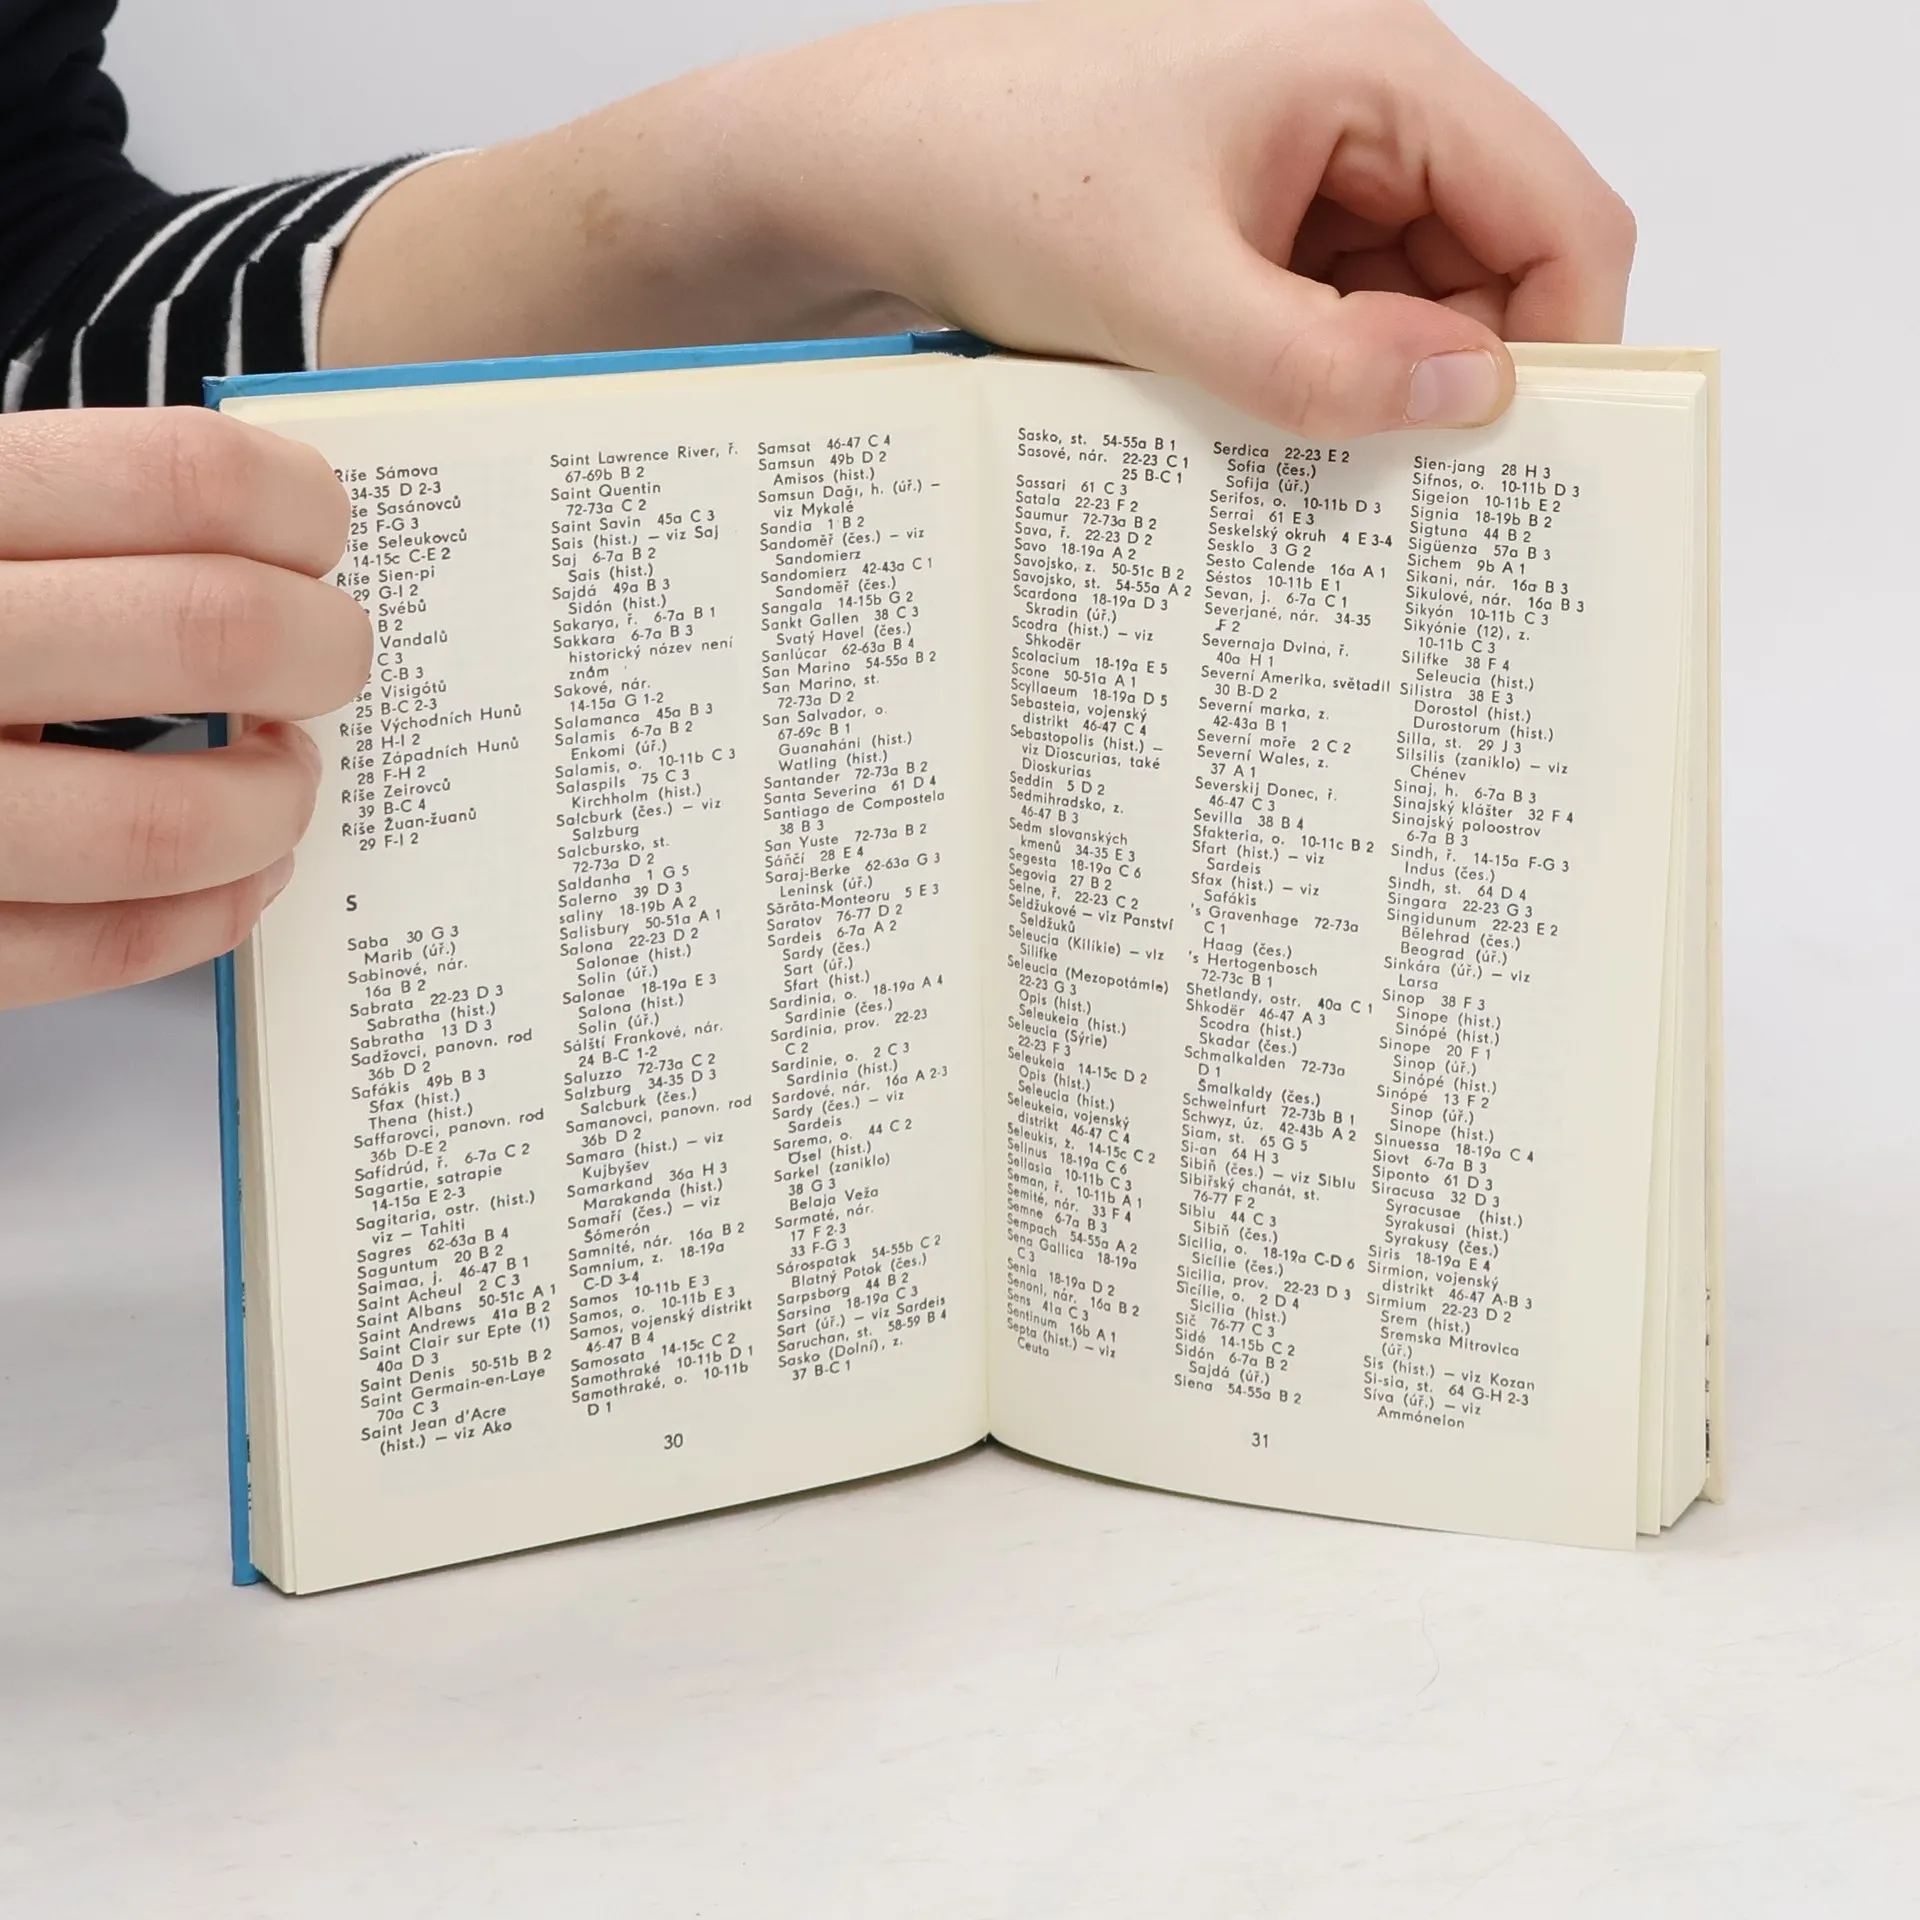 Říše Sámova
34-35 D 2-3
Sasánovců
25 F-G 3
Seleukovců
14-15c C-E 2
Říše Sien-pi
29 G-I 2
Svébů
B 2
Vandalů
C 3
C-B 3
Visigótů
25 B-C 2-3
Říše Východních Hunů
28 H-I 2
Říše Západních Hunů
28 F-H 2
Říše Zeirovců
39 B-C 4
Říše Žuan-žuanů
29 F-I 2
S
Saba 30 G 3
Marib (úř.)
Sabinové, nár.
16a B 2
Sabrata 22-23 D 3
Sabratha (hist.)
Sabratha 13 D 3
Sadžovci, panovn. rod
36b D 2
Safákis 49b B 3
Sfax (hist.)
Thena (hist.)
Saffarovci, panovn. rod
36b D-E 2
Safídrúd, ř. 6-7a C 2
Sagartie, satrapie
14-15a E 2-3
Sagitaria, ostr. (hist.)
viz — Tahiti
Sagres 62-63a B 4
Saguntum 20 B 2
Saimaa, j. 46-47 B 1
Saint Acheul 2 C 3
Saint Albans 50-51c A 1
Saint Andrews 41a B 2
Saint Clair sur Epte (1)
40a D 3
Saint Denis 50-51b B 2
Saint Germain-en-Laye
70a C 3
Saint Jean d'Acre
(hist.) — viz Ako
Saint Lawrence River, ř.
67-69b B 2
Saint Quentin
72-73a C 2
Saint Savin 45a C 3
Sais (hist.) — viz Saj
Saj 6-7a B 2
Sais (hist.)
Sajdá 49a B 3
Sidón (hist.)
Sakarya, ř. 6-7a B 1
Sakkara 6-7a B 3
historický název není
znám
Sakové, nár.
14-15a G 1-2
Salamanca 45a B 3
Salamis 6-7a B 2
Enkomi (úř.)
Salamis, o. 10-11b C 3
Salaspils 75 C 3
Kirchholm (hist.)
Salcburk (čes.) — viz
Salzburg
Salcbursko, st.
72-73a D 2
Saldanha 1 G 5
Salerno 39 D 3
saliny 18-19b A 2
Salisbury 50-51a A 1
Salona 22-23 D 2
Salonae (hist.)
Solin (úř.)
Salonae 18-19a E 3
Salona (hist.)
Solin (úř.)
Sálští Frankové, nár.
24 B-C 1-2
Saluzzo 72-73a C 2
Salzburg 34-35 D 3
Salcburk (čes.)
Samanovci, panovn. rod
36b D 2
Samara (hist.) — viz
Kujbyšev
Samarkand 36a H 3
Marakanda (hist.)
Samaří (čes.) — viz
Šómerón
Samnité, nár. 16a B 2
Samnium, z. 18-19a
C-D 3-4
Samos 10-11b E 3
Samos, o. 10-11b E 3
Samos, vojenský distrikt
46-47 B 4
Samosata 14-15c C 2
Samothraké 10-11b D 1
Samothraké, o. 10-11b
D 1
Samsat 46-47 C 4
Samsun 49b D 2
Amisos (hist.)
Samsun Dağı, h. (úř.) —
viz Mykalé
Sandia 1 B 2
Sandoměř (čes.) — viz
Sandomierz
Sandomierz 42-43a C 1
Sandoměř (čes.)
Sangala 14-15b G 2
Sankt Gallen 38 C 3
Svatý Havel (čes.)
Sanlúcar 62-63a B 4
San Marino 54-55a B 2
San Marino, st.
72-73a D 2
San Salvador, o.
67-69c B 1
Guanaháni (hist.)
Watling (hist.)
Santander 72-73a B 2
Santa Severina 61 D 4
Santiago de Compostela
38 B 3
San Yuste 72-73a B 2
Sáňčí 28 E 4
Saraj-Berke 62-63a G 3
Leninsk (úř.)
Sărăta-Monteoru 5 E 3
Saratov 76-77 D 2
Sardeis 6-7a A 2
Sardy (čes.)
Sart (úř.)
Sfart (hist.)
Sardinia, o. 18-19a A 4
Sardinie (čes.)
Sardinia, prov. 22-23
C 2
Sardinie, o. 2 C 3
Sardinia (hist.)
Sardové, nár. 16a A 2-3
Sardy (čes.) — viz
Sardeis
Sarema, o. 44 C 2
Ösel (hist.)
Sarkel (zaniklo)
38 G 3
Belaja Veža
Sarmaté, nár.
17 F 2-3
33 F-G 3
Sárospatak 54-55b C 2
Blatný Potok (čes.)
Sarpsborg 44 B 2
Sarsina 18-19a C 3
Sart (úř.) — viz Sardeis
Saruchan, st. 58-59 B 4
Sasko (Dolní), z.
37 B-C 1
30
Sasko, st. 54-55a B 1
Sasové, nár. 22-23 C 1
25 B-C 1
Sassari 61 C 3
Satala 22-23 F 2
Saumur 72-73a B 2
Sava, ř. 22-23 D 2
Savo 18-19a A 2
Savojsko, z. 50-51c B 2
Savojsko, st. 54-55a A 2
Scardona 18-19a D 3
Skradin (úř.)
Scodra (hist.) — viz
Shkodër
Scolacium 18-19a E 5
Scone 50-51a A 1
Scyllaeum 18-19a D 5
Sebasteia, vojenský
distrikt 46-47 C 4
Sebastopolis (hist.) —
viz Dioscurias, také
Dioskurias
Seddin 5 D 2
Sedmihradsko, z.
46-47 B 3
Sedm slovanských
kmenů 34-35 E 3
Segesta 18-19a C 6
Segovia 27 B 2
Seine, ř. 22-23 C 2
Seldžukové — viz Panství
Seldžuků
Seleucia (Kilíkie) — viz
Silifke
Seleucia (Mezopotámie)
22-23 G 3
Opis (hist.)
Seleukeia (hist.)
Seleucia (Sýrie)
22-23 F 3
Seleukeia 14-15c D 2
Opis (hist.)
Seleucia (hist.)
Seleukeia, vojenský
distrikt 46-47 C 4
Seleukis, z. 14-15c C 2
Selinus 18-19a C 6
Sellasia 10-11b C 3
Seman, ř. 10-11b A 1
Semité, nár. 33 F 4
Semne 6-7a B 3
Sempach 54-55a A 2
Sena Gallica 18-19a
C 3
Senia 18-19a D 2
Senoni, nár. 16a B 2
Sens 41a C 3
Sentinum 16b A 1
Septa (hist.) — viz
Ceuta
Serdica 22-23 E 2
Sofia (čes.)
Sofija (úř.)
Serifos, o. 10-11b D 3
Serrai 61 E 3
Seskelský okruh 4 E 3-4
Sesklo 3 G 2
Sesto Calende 16a A 1
Séstos 10-11b E 1
Sevan, j. 6-7a C 1
Severjané, nár. 34-35
F 2
Severnaja Dvina, ř.
40a H 1
Severní Amerika, světadíl
30 B-D 2
Severní marka, z.
42-43a B 1
Severní moře 2 C 2
Severní Wales, z.
37 A 1
Severskij Donec, ř.
46-47 C 3
Sevilla 38 B 4
Sfakteria, o. 10-11c B 2
Sfart (hist.) — viz
Sardeis
Sfax (hist.) — viz
Safákis
's Gravenhage 72-73a
C 1
Haag (čes.)
's Hertogenbosch
72-73c B 1
Shetlandy, ostr. 40a C 1
Shkodër 46-47 A 3
Scodra (hist.)
Skadar (čes.)
Schmalkalden 72-73a
D 1
Šmalkaldy (čes.)
Schweinfurt 72-73b B 1
Schwyz, úz. 42-43b A 2
Siam, st. 65 G 5
Si-an 64 H 3
Sibiň (čes.) — viz Sibiu
Sibiřský chanát, st.
76-77 F 2
Sibiu 44 C 3
Sibiň (čes.)
Sicilia, o. 18-19a C-D 6
Sicílie (čes.)
Sicilia, prov. 22-23 D 3
Sicílie, o. 2 D 4
Sicilia (hist.)
Sič 76-77 C 3
Sidé 14-15b C 2
Sidón 6-7a B 2
Sajdá (úř.)
Siena 54-55a B 2
Sien-jang 28 H 3
Sifnos, o. 10-11b D 3
Sigeion 10-11b E 2
Signia 18-19b B 2
Sigtuna 44 B 2
Sigüenza 57a B 3
Sichem 9b A 1
Sikani, nár. 16a B 3
Sikulové, nár. 16a B 3
Sikyón 10-11b C 3
Sikyónie (12), z.
10-11b C 3
Silifke 38 F 4
Seleucia (hist.)
Silistra 38 E 3
Dorostol (hist.)
Durostorum (hist.)
Silla, st. 29 J 3
Silsilis (zaniklo) — viz
Chénev
Sinaj, h. 6-7a B 3
Sinajský klášter 32 F 4
Sinajský poloostrov
6-7a B 3
Sindh, ř. 14-15a F-G 3
Indus (čes.)
Sindh, st. 64 D 4
Singara 22-23 G 3
Singidunum 22-23 E 2
Bělehrad (čes.)
Beograd (úř.)
Sinkára (úř.) — viz
Larsa
Sinop 38 F 3
Sinope (hist.)
Sinópé (hist.)
Sinope 20 F 1
Sinop (úř.)
Sinópé (hist.)
Sinópé 13 F 2
Sinop (úř.)
Sinope (hist.)
Sinuessa 18-19a C 4
Siovt 6-7a B 3
Siponto 61 D 3
Siracusa 32 D 3
Syracusae (hist.)
Syrakusai (hist.)
Syrakusy (čes.)
Siris 18-19a E 4
Sirmion, vojenský
distrikt 46-47 A-B 3
Sirmium 22-23 D 2
Srem (hist.)
Sremska Mitrovica
(úř.)
Sis (hist.) — viz Kozan
Si-sia, st. 64 G-H 2-3
Síva (úř.) — viz
Ammóneion
31